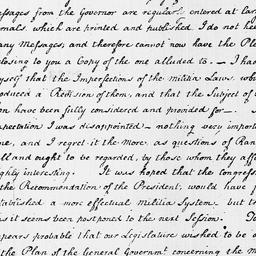 essages from the Governor are regularly entered at lar
rnals, which are printed and published I do not kee
any Messages, and therefore cannot now have the Ple
closing to you a Copy of the one alluded to. — I ha
yself that the Imperfections of the militia Laws, wh
oduced a Revision of them, and that the Subject of
on have been fully considered and provided for —.
xpectation I was disappointed — nothing very import
ne, and I regret it the more, as questions of Ran
ll and ought to be regarded, by those whom they aff
ghly interesting. It was hoped that the Congress
the Recommendation of the President, would have
tablished a more effectual militia System, but
as it seems been postponed to the next Session.
pears probable that our Legislature wished to be
the Plan of the General Governmt. concerning the m